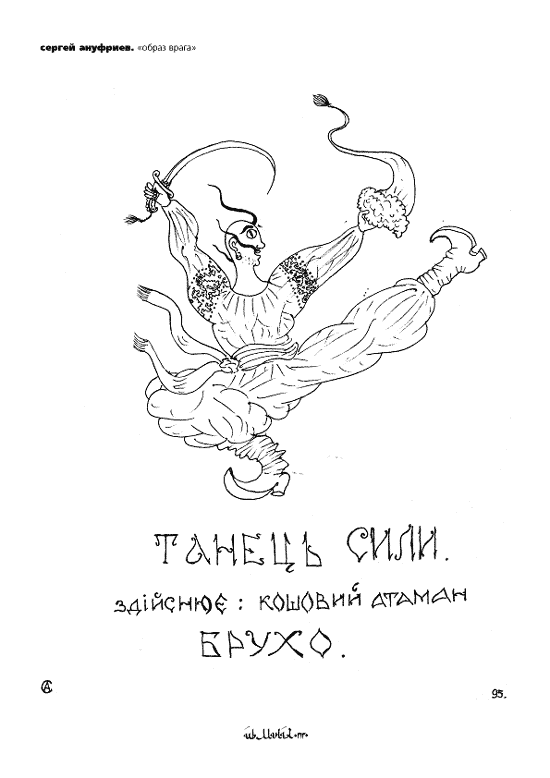 сергей ануфриев. «образ врага»
ТАНЕЦЬ СИЛИ.
здійснює: кошовий атаман
БРУХО.
95.